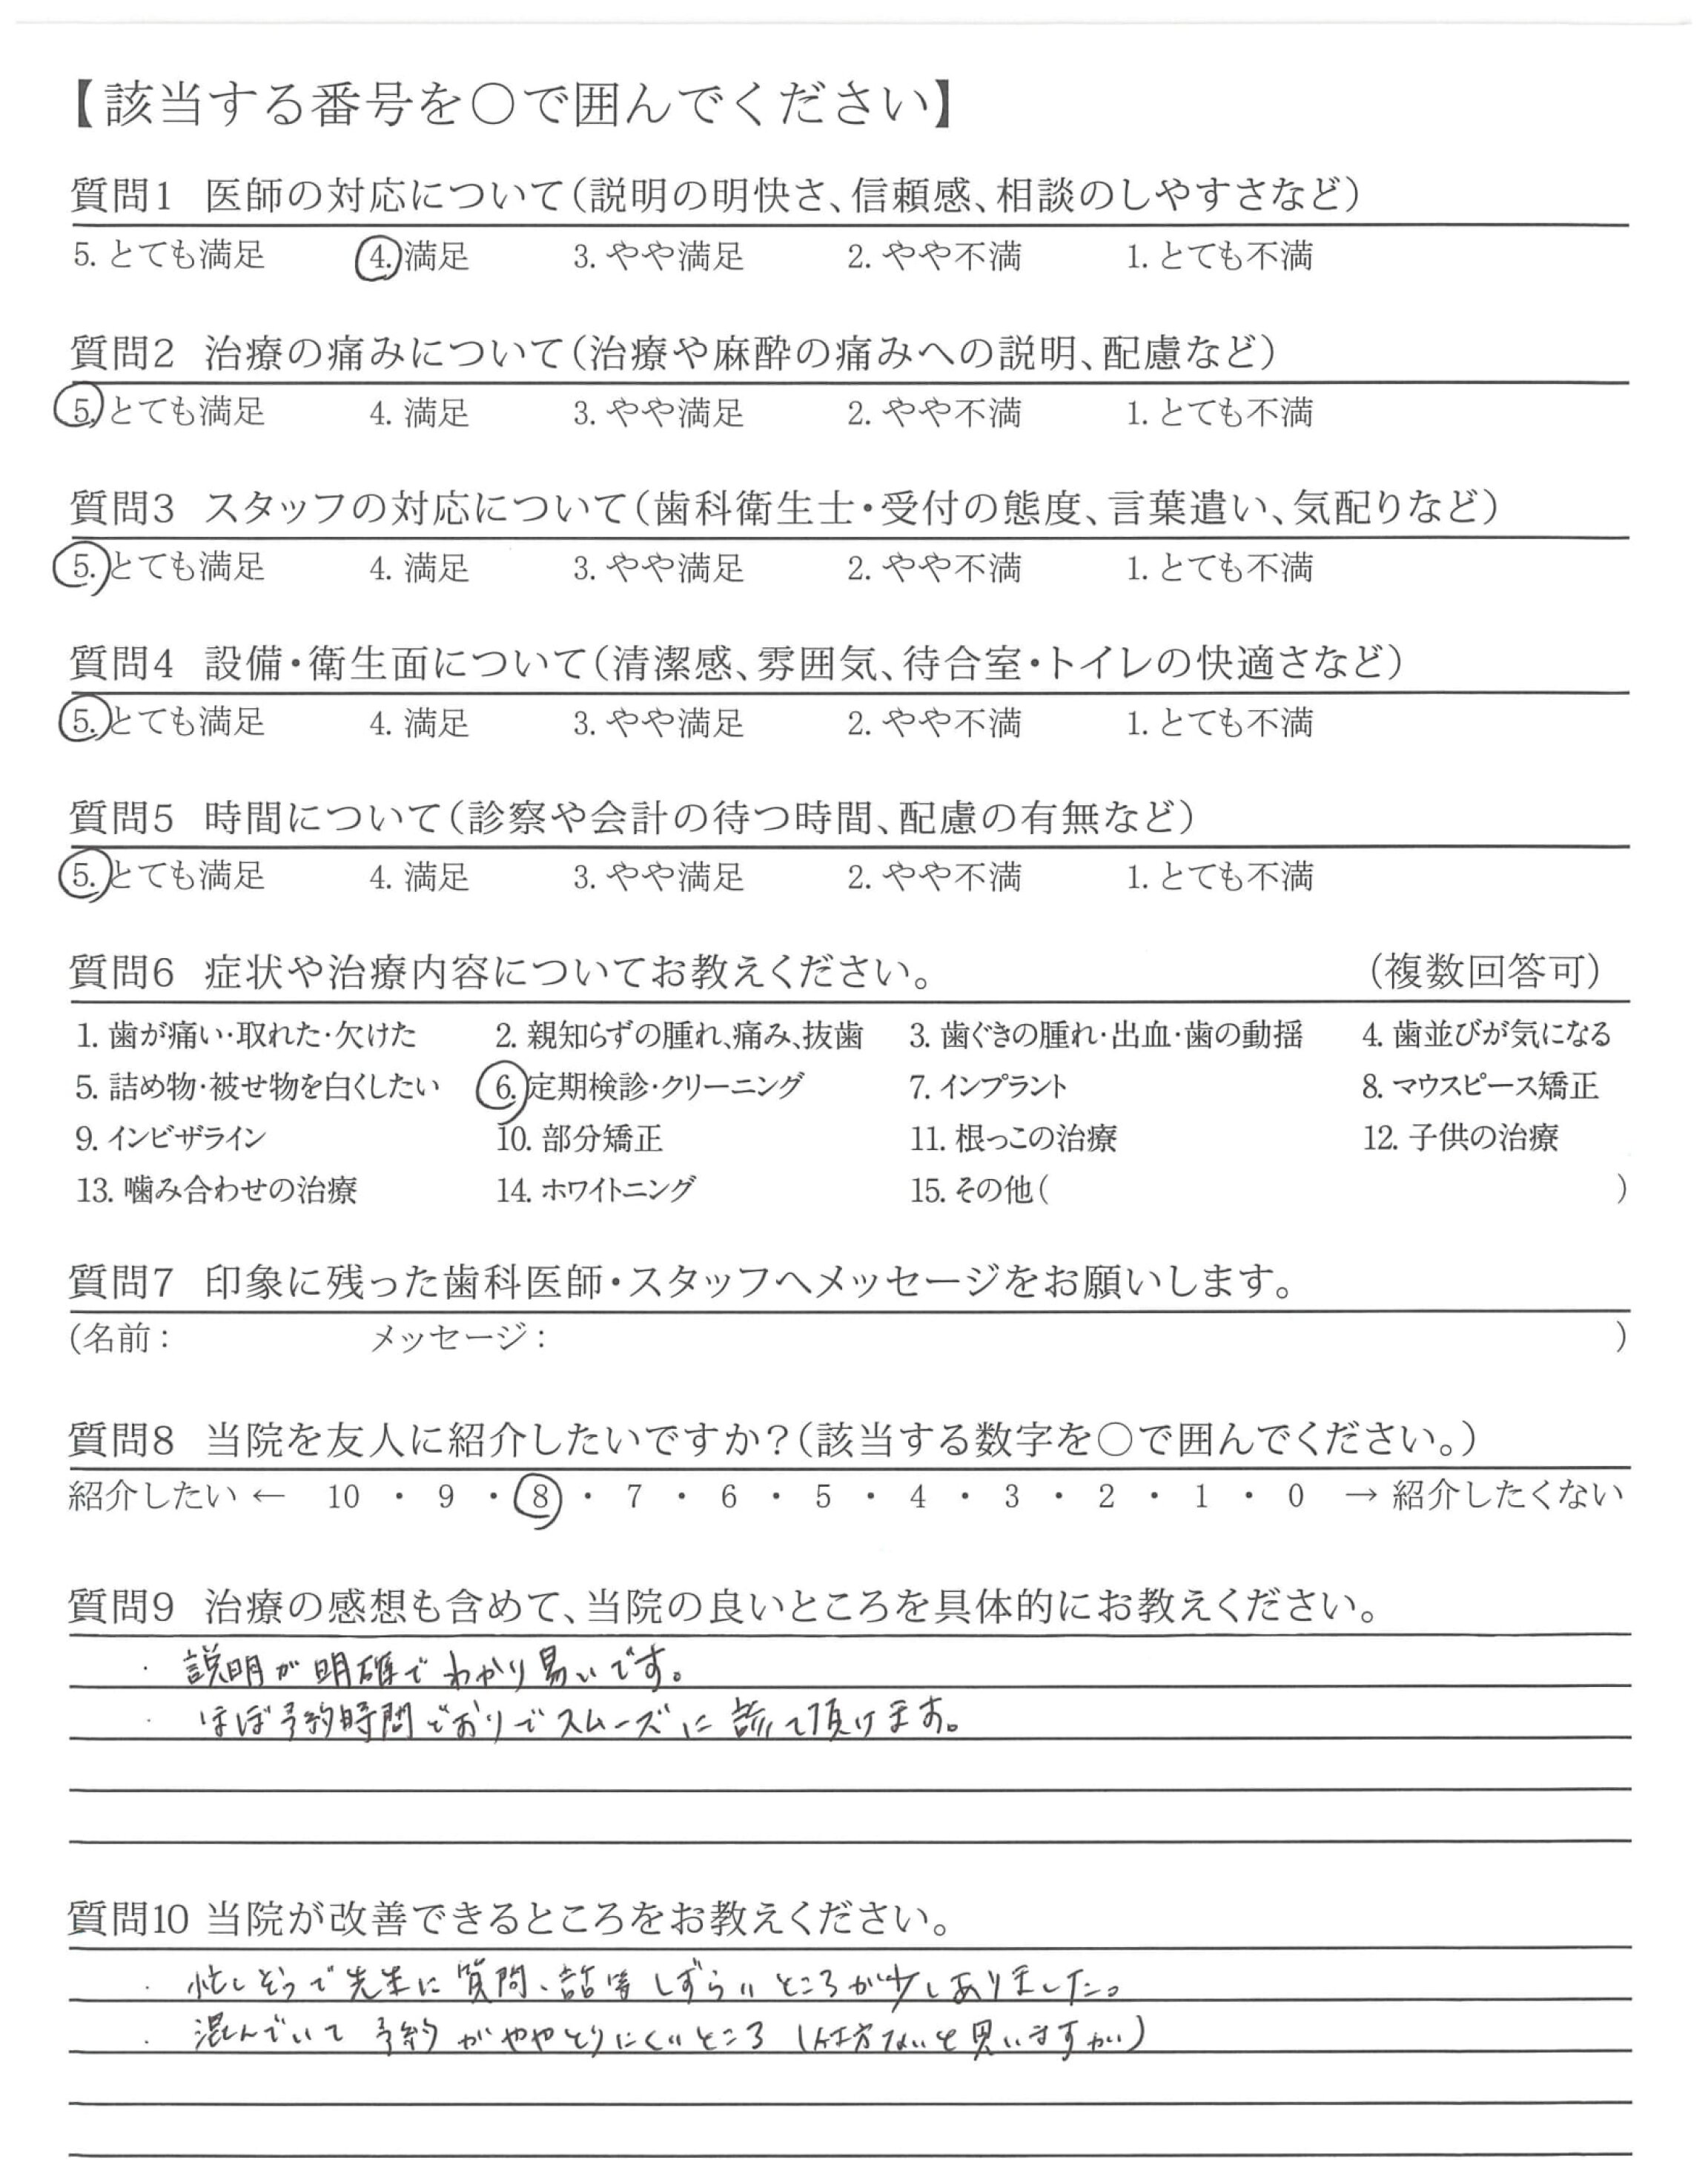 【該当する番号を○で囲んでください】
質問1 医師の対応について(説明の明快さ、信頼感、相談のしやすさなど)
5. とても満足 4. 満足 3. やや満足 2. やや不満 1. とても不満
質問2 治療の痛みについて(治療や麻酔の痛みへの説明、配慮など)
5. とても満足 4. 満足 3. やや満足 2. やや不満 1. とても不満
質問3 スタッフの対応について(歯科衛生士・受付の態度、言葉遣い、気配りなど)
5. とても満足 4. 満足 3. やや満足 2. やや不満 1. とても不満
質問4 設備・衛生面について(清潔感、雰囲気、待合室・トイレの快適さなど)
5. とても満足 4. 満足 3. やや満足 2. やや不満 1. とても不満
質問5 時間について(診察や会計の待つ時間、配慮の有無など)
5. とても満足 4. 満足 3. やや満足 2. やや不満 1. とても不満
質問6 症状や治療内容についてお教えください。 (複数回答可)
1. 歯が痛い・取れた・欠けた 2. 親知らずの腫れ、痛み、抜歯 3. 歯ぐきの腫れ・出血・歯の動揺 4. 歯並びが気になる
5. 詰め物・被せ物を白くしたい 6. 定期検診・クリーニング 7. インプラント 8. マウスピース矯正
9. インビザライン 10. 部分矯正 11. 根っこの治療 12. 子供の治療
13. 噛み合わせの治療 14. ホワイトニング 15. その他( )
質問7 印象に残った歯科医師・スタッフへメッセージをお願いします。
(名前: メッセージ: )
質問8 当院を友人に紹介したいですか?(該当する数字を○で囲んでください。)
紹介したい ← 10 ・ 9 ・ 8 ・ 7 ・ 6 ・ 5 ・ 4 ・ 3 ・ 2 ・ 1 ・ 0 → 紹介したくない
質問9 治療の感想も含めて、当院の良いところを具体的にお教えください。
・ 説明が明確でわかり易いです。
・ ほぼ予約時間どおりでスムーズに診て頂けます。
質問10 当院が改善できるところをお教えください。
・ 忙しそうで先生に質問、話等しずらいところが少しありました。
・ 混んでいて予約がややとりにくいところ(仕方ないと思いますが)